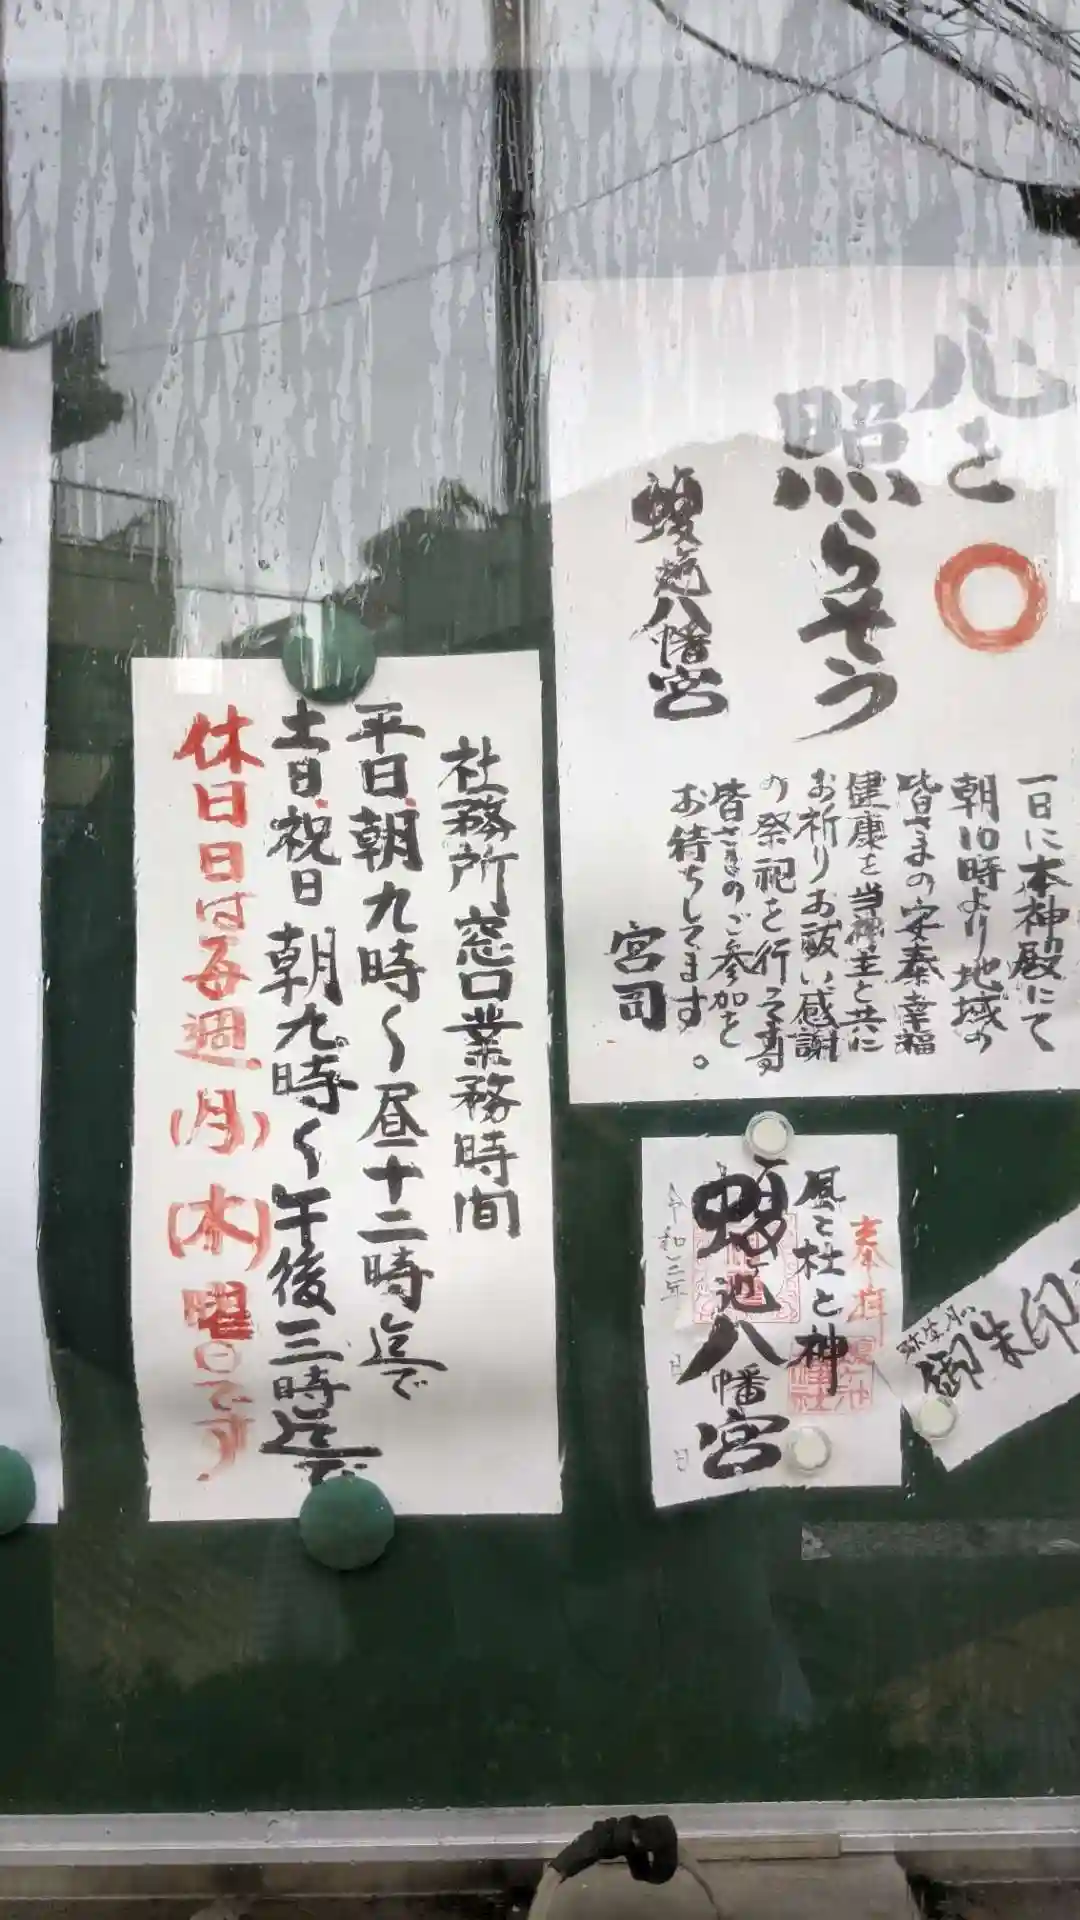 心を
照らそう
蝮ヶ池八幡宮
一日に本神殿にて
朝10時より地域の
皆さまの安泰幸福
健康を当神主と共に
お祈りお祓い感謝
の祭祀を行ろます
皆さまのご参加を
お待ちしてます。
宮司
社務所窓口業務時間
平日朝九時～昼十二時迄で
土日祝日 朝九時～午後三時迄で
休日日は毎週(月)(木)曜日です
奉拝
杜と神
蝮ヶ池八幡宮
令和三年 月 日
御朱印